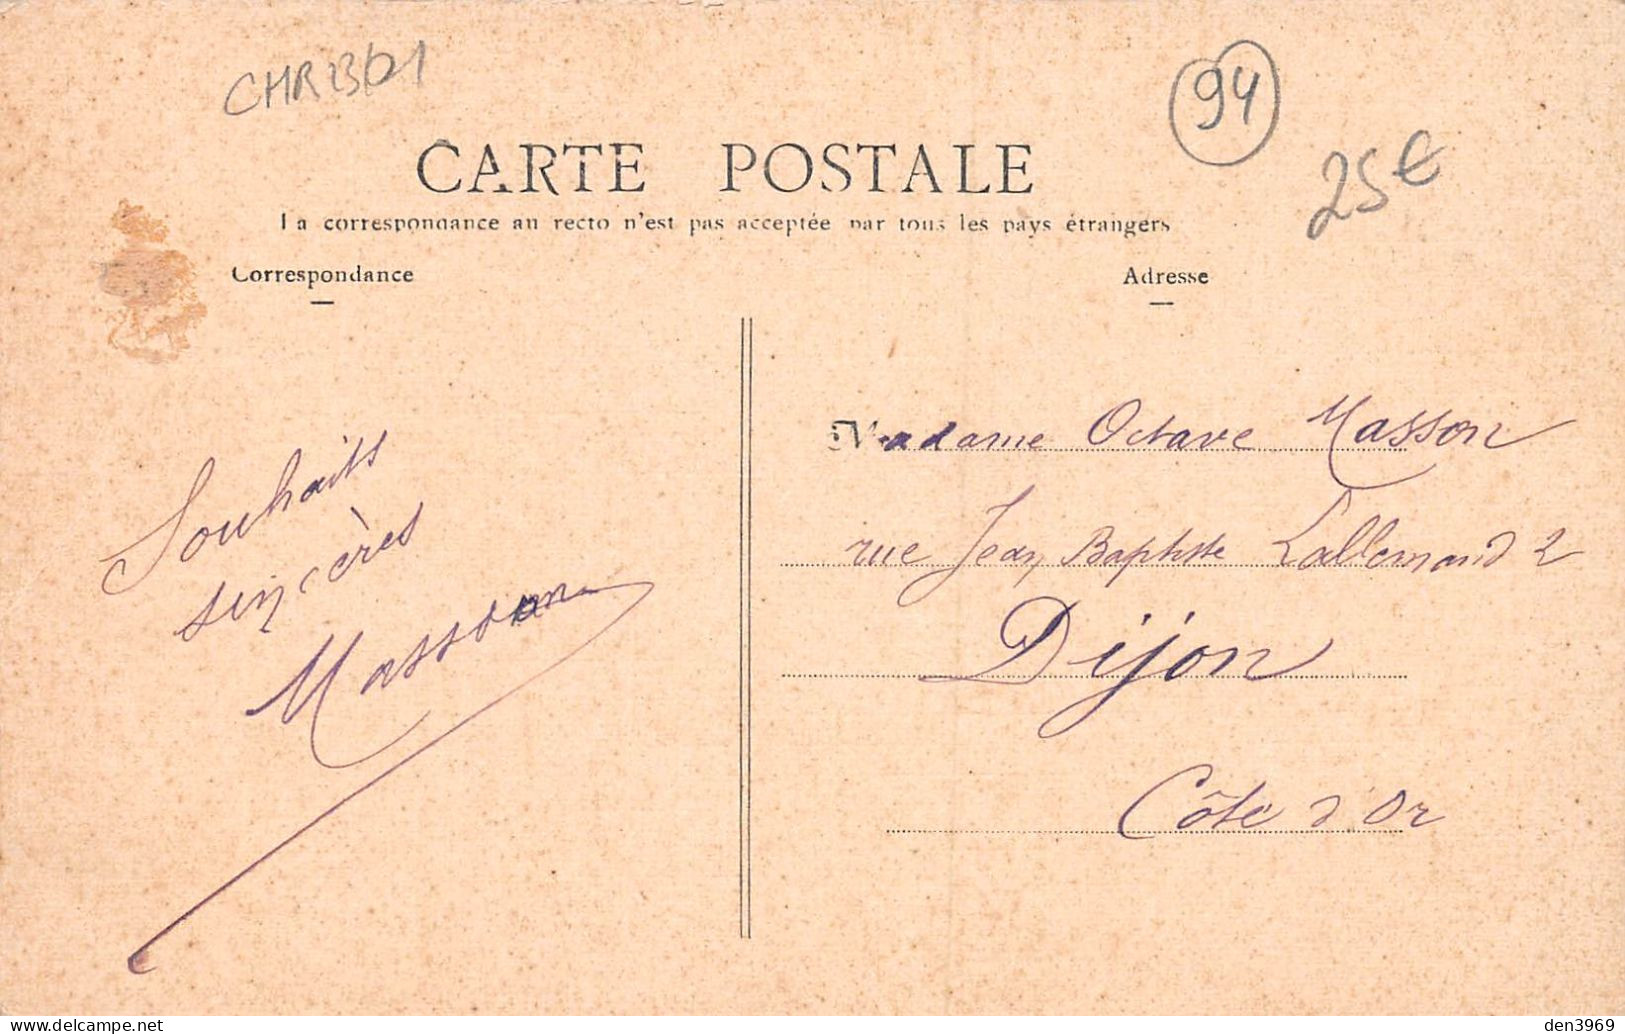 CHR23/01
94
25€
CARTE POSTALE
La correspondance au recto n'est pas acceptée par tous les pays étrangers
Correspondance
Adresse
Souhaits
sincères
Masson
Madame Octave Masson
rue Jean Baptiste Lallemand 2
Dijon
Côte d'Or
den3969